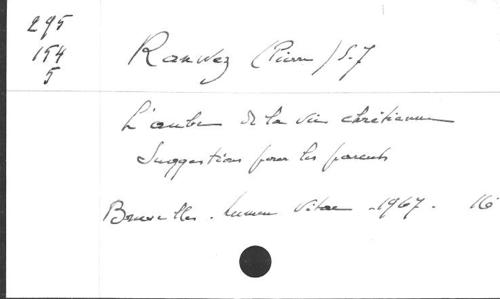 295
154
5
Ranwez (Pierre) S.J
L'aube de la vie chrétienne
Suggestions pour les parents
Bruxelles. Lumen Vitae - 1967 - 16